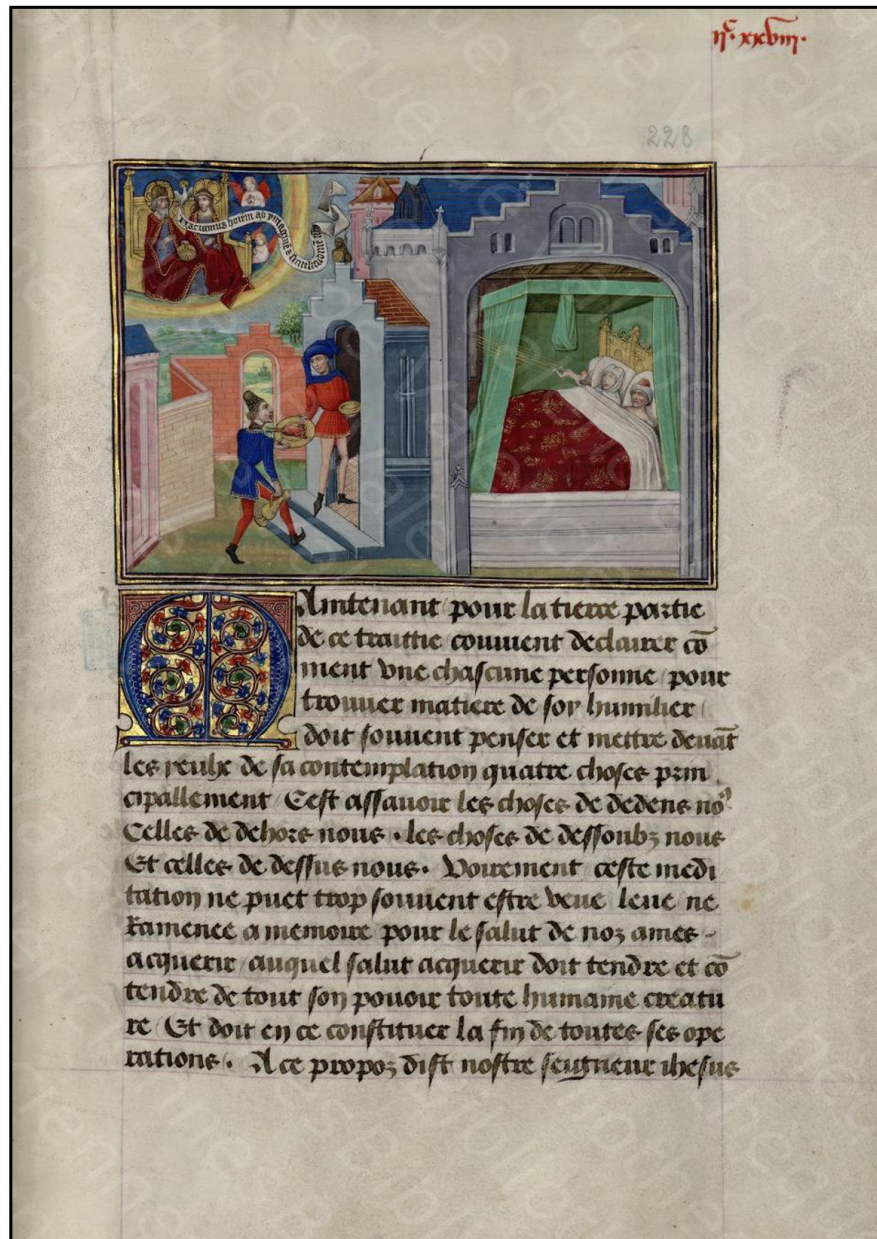 iiᶜ. xxviii.
228
faciamus hoīem ad ymaginē & similitudinē
Maintenant pour la tierce partie
de ce traittie couvient declairer cō
ment vne chascune personne pour
trouuer matiere de soy humilier
doit souuent penser et mettre deuāt
les yeulx de sa contemplation quatre choses prin
cipallement / Cest assauoir les choses de dedens no⁹
Celles de dehors nous . les choses de dessoubz nous
Et celles de dessus nous . Voirement ceste medi
tation ne puet trop souuent estre veue leue ne
Ramenee a memoire pour le salut de noz ames -
acquerir / auquel salut acquerir doit tendre et cō
tendre de tout son pouoir toute humaine creatu
re Et doit en ce constituer la fin de toutes ses ope
rations . A ce propoz dist nostre seigneur ihesus